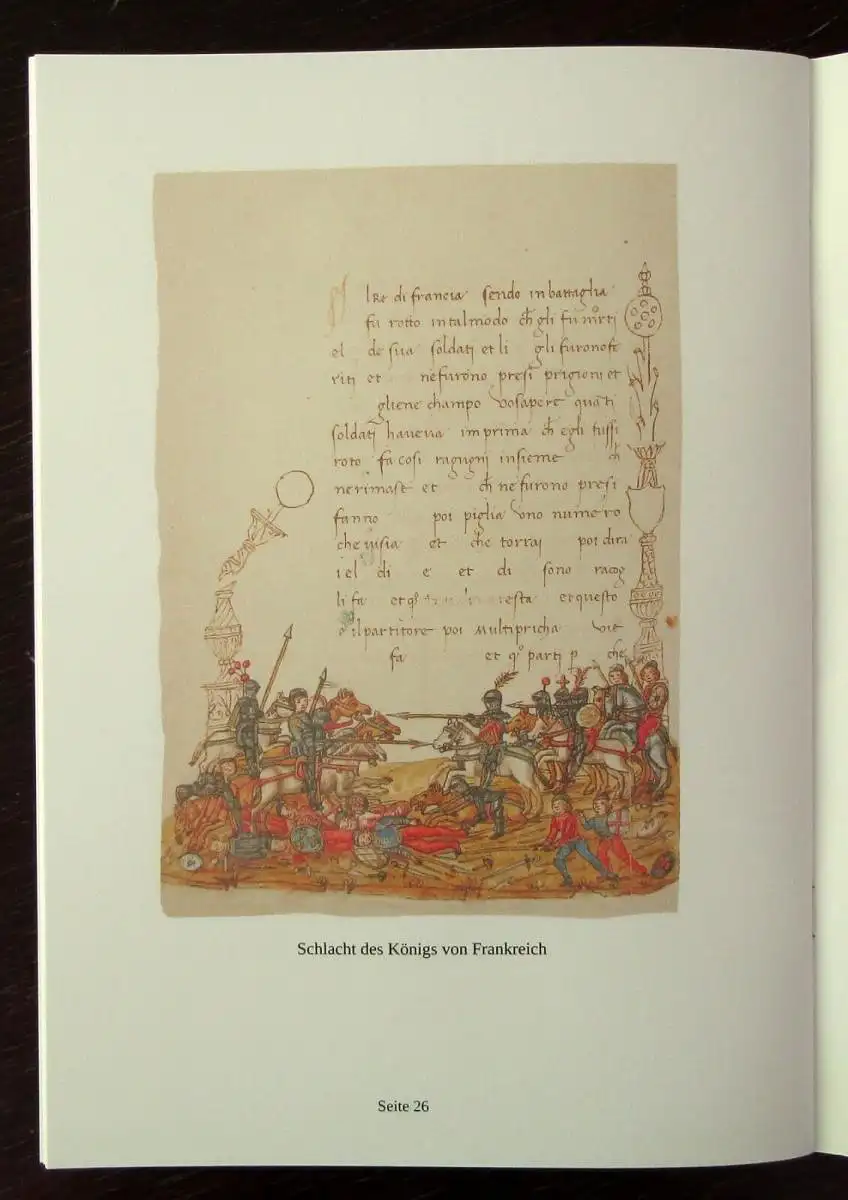 Il Re di francia sendo in battaglia
fu rotto in tal modo ch gli fu morti
el de sua soldati et li gli furono fe
riti et ne furono presi prigioni et
gliene champo vo sapere quati
soldati haveva imprima ch egli fussi
roto fa cosi ragugni insieme ch
ne rimase et ch ne furono presi
fanno poi piglia uno numero
che et che torrai poi dira
i el di e et di sono racog
li fa et resta et questo
e il partitore poi multipricha vie
fa et parti p che
Schlacht des Königs von Frankreich
Seite 26